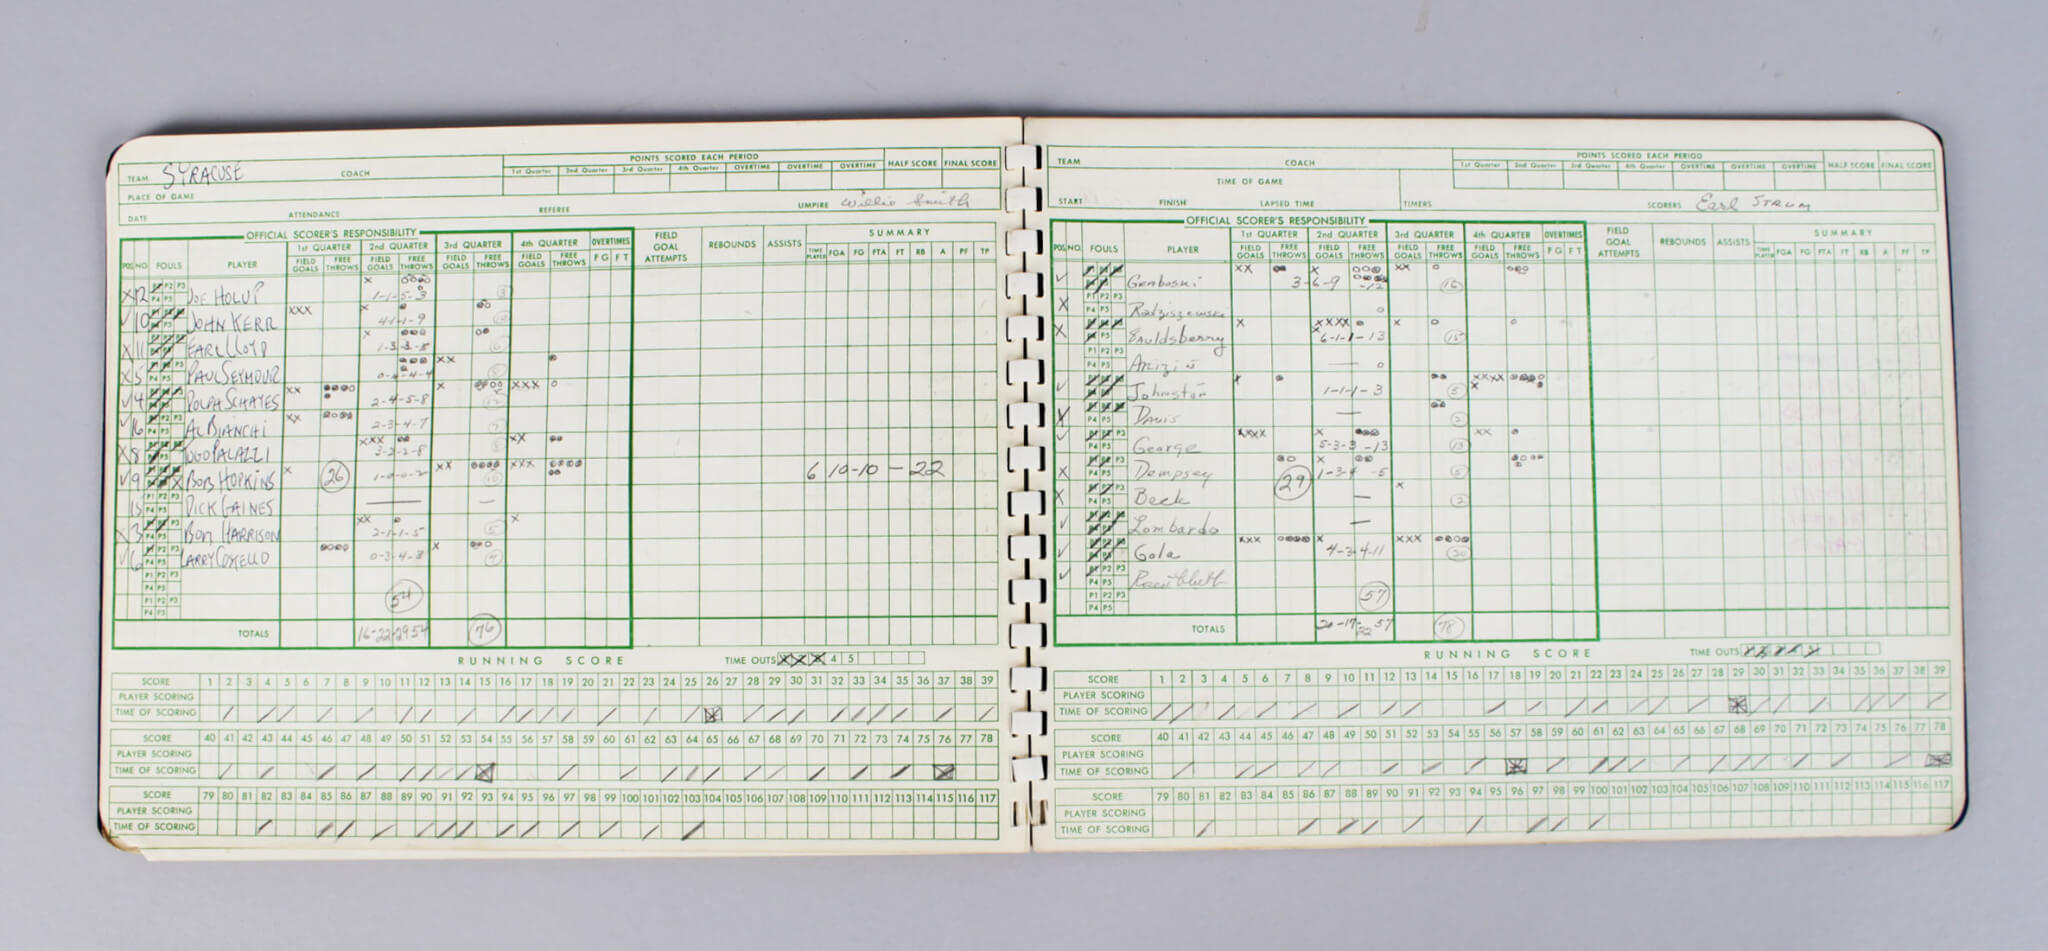 TEAM SYRACUSE COACH POINTS SCORED EACH PERIOD HALF SCORE FINAL SCORE
1st Quarter 2nd Quarter 3rd Quarter 4th Quarter OVERTIME OVERTIME OVERTIME
PLACE OF GAME
DATE ATTENDANCE REFEREE UMPIRE Willie Smith
OFFICIAL SCORER'S RESPONSIBILITY
POS NO. FOULS PLAYER 1st QUARTER 2nd QUARTER 3rd QUARTER 4th QUARTER OVERTIMES FIELD GOAL ATTEMPTS REBOUNDS ASSISTS SUMMARY
FIELD GOALS FREE THROWS FIELD GOALS FREE THROWS FIELD GOALS FREE THROWS FIELD GOALS FREE THROWS F G F T TIME PLAYED FGA FG FTA FT RB A PF TP
X 12 JOE HOLUP 1-1-5-3
✓ 10 JOHN KERR 4-1-1-9
X 11 EARL LLOYD 1-3-3-5
X 5 PAUL SEYMOUR 0-4-4-4
✓ 4 DOLPH SCHAYES 2-4-5-8
✓ 16 AL BIANCHI 2-3-4-7
X 8 TOGO PALAZZI 3-2-2-8
✓ 9 BOB HOPKINS 26 1-0-0-2 6 10-10-22
15 DICK GAINES
X 3 BOB HARRISON 2-1-1-5
✓ 6 LARRY COSTELLO 0-3-4-3
54
TOTALS 16-22-29 54 76
RUNNING SCORE TIME OUTS 4 5
SCORE 1 2 3 4 5 6 7 8 9 10 11 12 13 14 15 16 17 18 19 20 21 22 23 24 25 26 27 28 29 30 31 32 33 34 35 36 37 38 39
PLAYER SCORING
TIME OF SCORING
SCORE 40 41 42 43 44 45 46 47 48 49 50 51 52 53 54 55 56 57 58 59 60 61 62 63 64 65 66 67 68 69 70 71 72 73 74 75 76 77 78
PLAYER SCORING
TIME OF SCORING
SCORE 79 80 81 82 83 84 85 86 87 88 89 90 91 92 93 94 95 96 97 98 99 100 101 102 103 104 105 106 107 108 109 110 111 112 113 114 115 116 117
PLAYER SCORING
TIME OF SCORING
TEAM COACH POINTS SCORED EACH PERIOD HALF SCORE FINAL SCORE
1st Quarter 2nd Quarter 3rd Quarter 4th Quarter OVERTIME OVERTIME OVERTIME
TIME OF GAME
START FINISH LAPSED TIME TIMERS SCORERS Earl STRUM
OFFICIAL SCORER'S RESPONSIBILITY
POS NO. FOULS PLAYER 1st QUARTER 2nd QUARTER 3rd QUARTER 4th QUARTER OVERTIMES FIELD GOAL ATTEMPTS REBOUNDS ASSISTS SUMMARY
FIELD GOALS FREE THROWS FIELD GOALS FREE THROWS FIELD GOALS FREE THROWS FIELD GOALS FREE THROWS F G F T TIME PLAYED FGA FG FTA FT RB A PF TP
✓ Graboski 3-6-9-12 16
X 0
X Sauldsberry 6-1-1-13 15
Arizin 0
✓ Johnston 1-1-1-3 5
X Davis 2
✓ George 5-3-3-13 13
X Dempsey 29 1-3-4-5 5
X Beck 2
✓ Lombardo
✓ Gola 4-3-4-11 20
✓
57
TOTALS 20-17-22 57 78
RUNNING SCORE TIME OUTS
SCORE 1 2 3 4 5 6 7 8 9 10 11 12 13 14 15 16 17 18 19 20 21 22 23 24 25 26 27 28 29 30 31 32 33 34 35 36 37 38 39
PLAYER SCORING
TIME OF SCORING
SCORE 40 41 42 43 44 45 46 47 48 49 50 51 52 53 54 55 56 57 58 59 60 61 62 63 64 65 66 67 68 69 70 71 72 73 74 75 76 77 78
PLAYER SCORING
TIME OF SCORING
SCORE 79 80 81 82 83 84 85 86 87 88 89 90 91 92 93 94 95 96 97 98 99 100 101 102 103 104 105 106 107 108 109 110 111 112 113 114 115 116 117
PLAYER SCORING
TIME OF SCORING